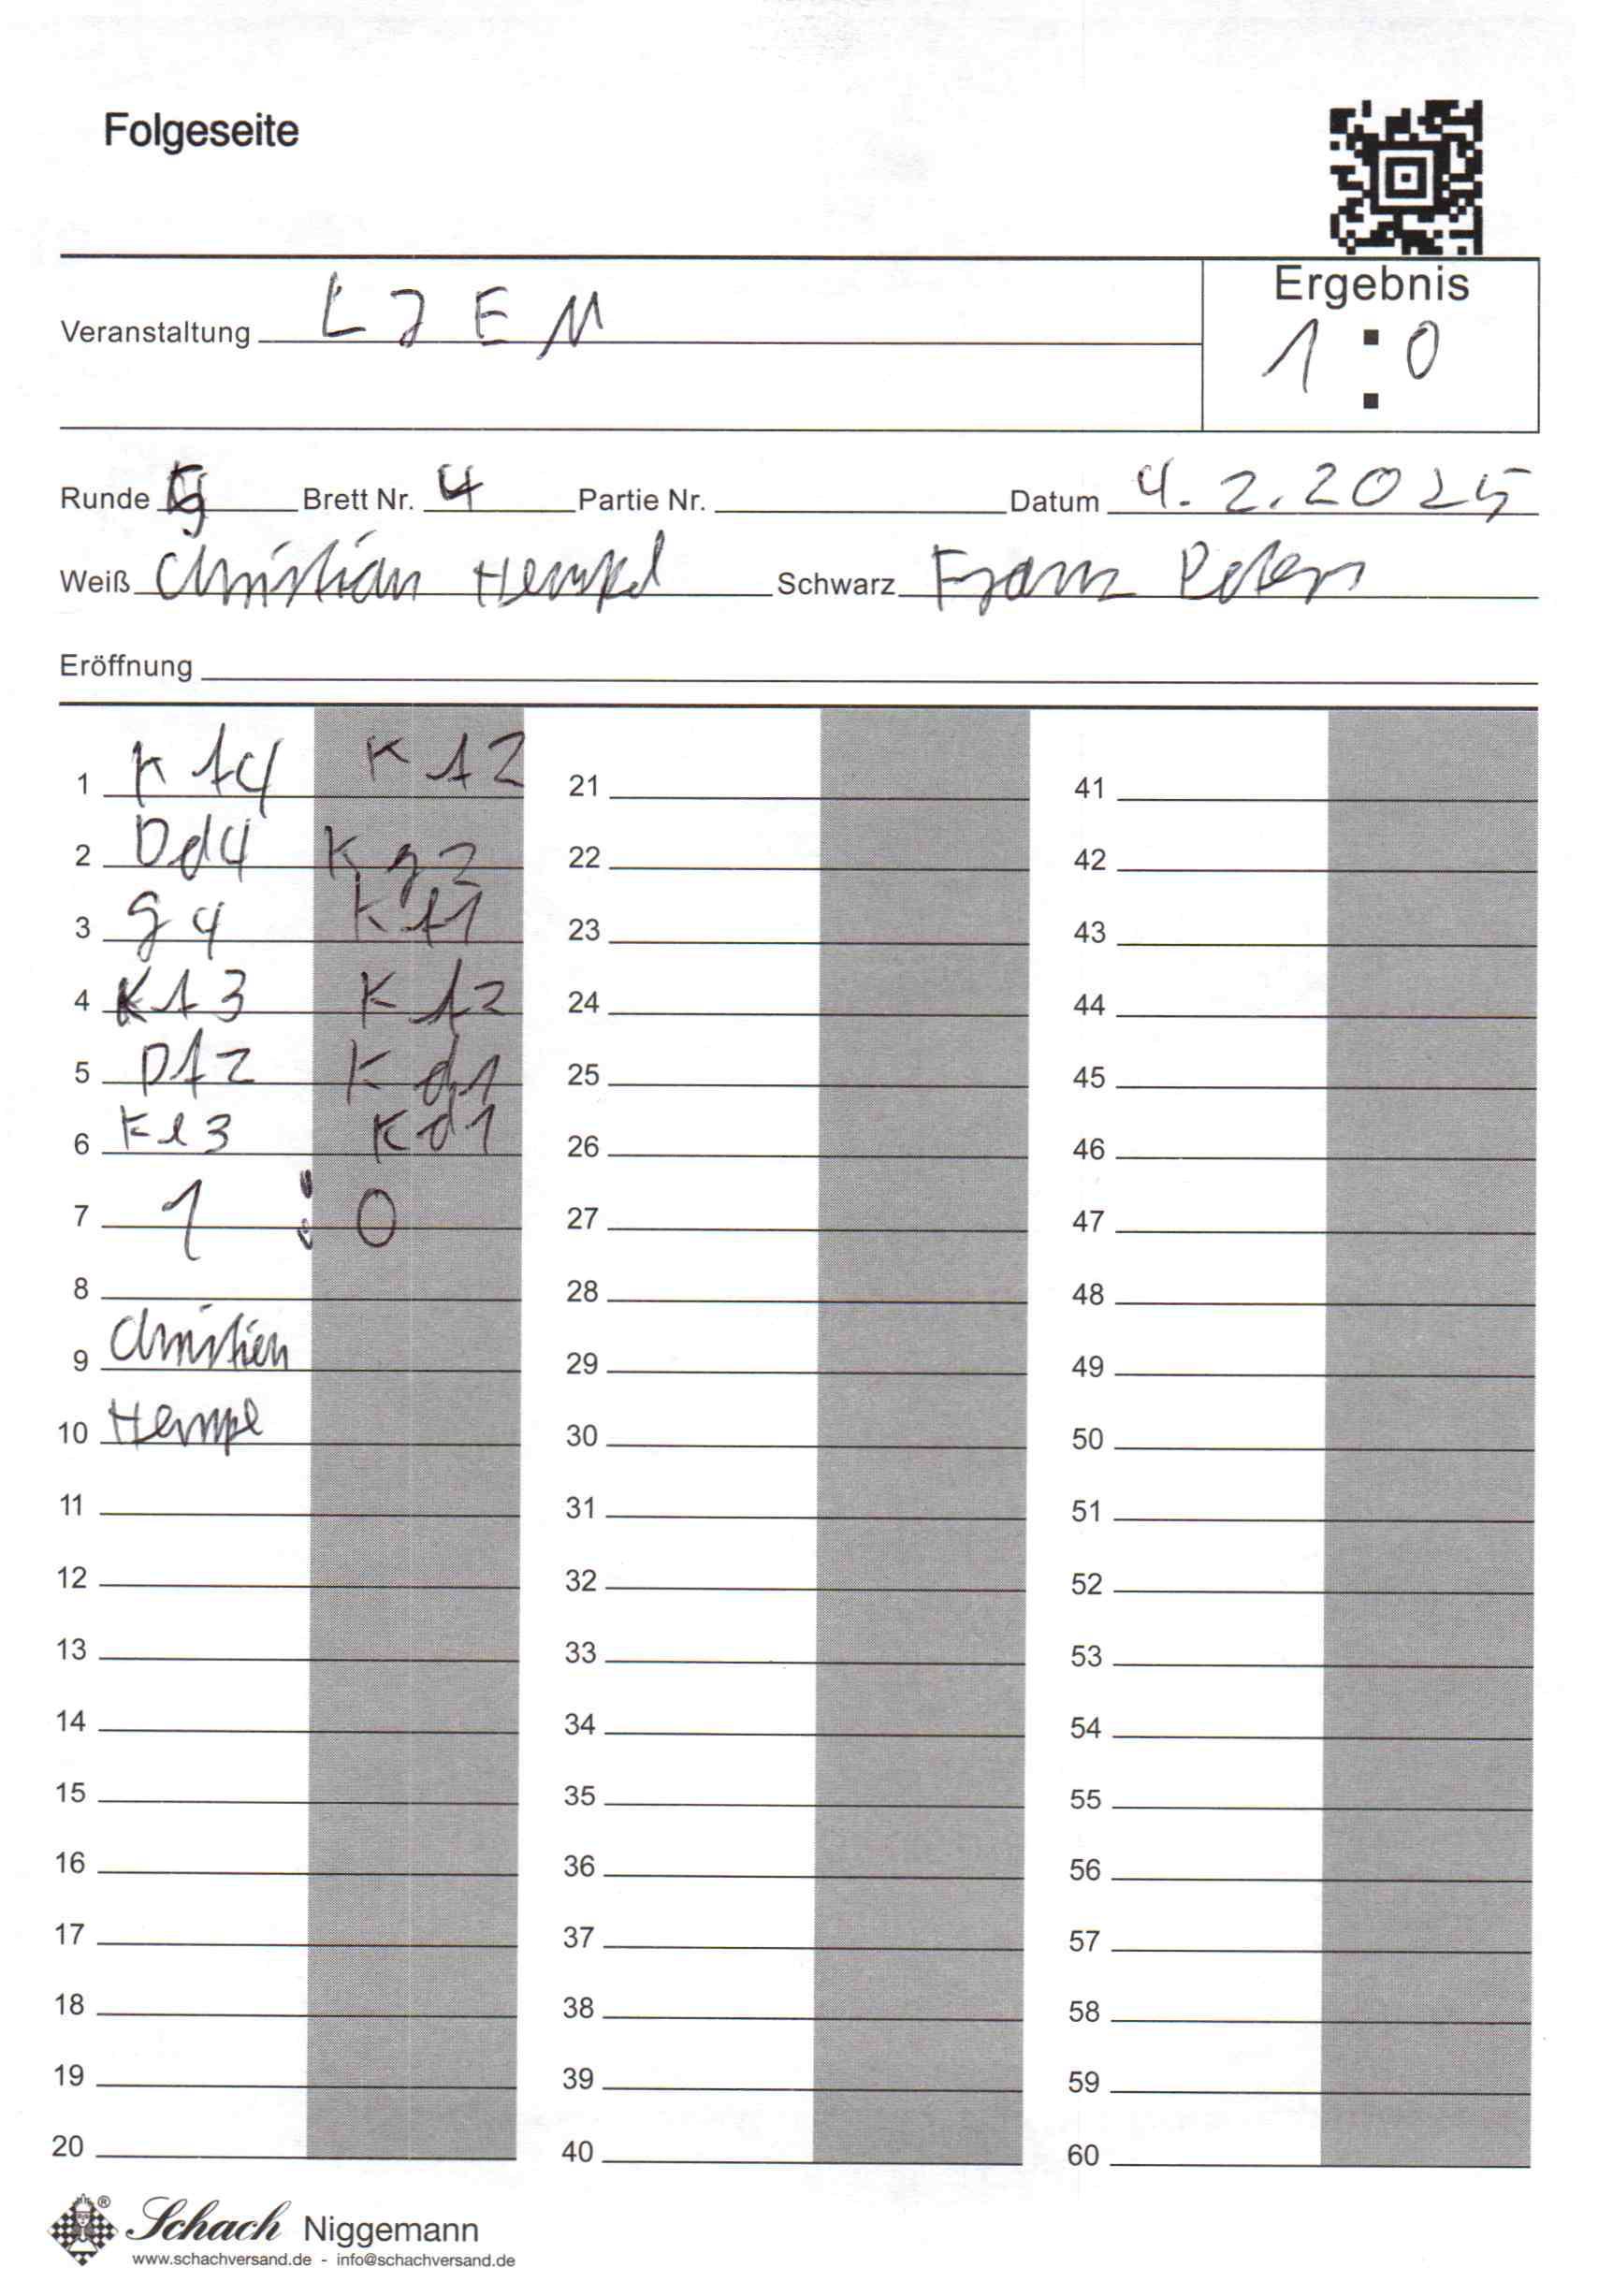 Folgeseite
Ergebnis
1 : 0
Veranstaltung LJEM
Runde Brett Nr. 4 Partie Nr. Datum 4.2.2025
Weiß Christian Hempel Schwarz Franz Peters
Eröffnung
1 Kf4 Kf2 21 41
2 Dd4 Kg2 22 42
3 g4 Kf1 23 43
4 Kf3 Kf2 24 44
5 Df2 Kd1 25 45
6 Ke3 Kd1 26 46
7 1 : 0 27 47
8 28 48
9 Christian 29 49
10 Hempel 30 50
11 31 51
12 32 52
13 33 53
14 34 54
15 35 55
16 36 56
17 37 57
18 38 58
19 39 59
20 40 60
Schach Niggemann
www.schachversand.de - info@schachversand.de